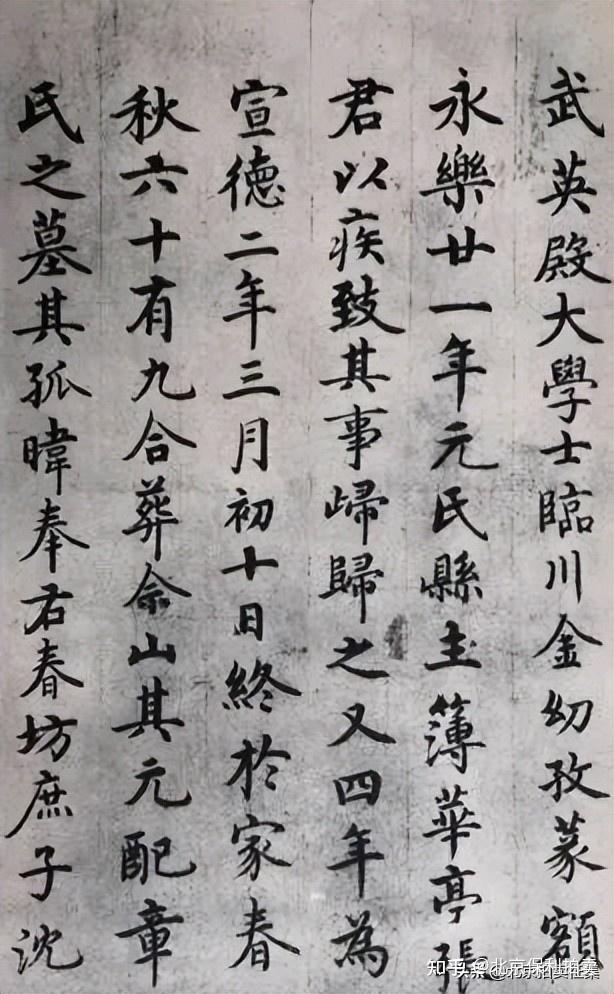 武英殿大學士臨川金幼孜篆額
永樂廿一年元氏縣主簿華亭張
君以疾致其事歸歸之又四年為
宣德二年三月初十日終於家春
秋六十有九合葬佘山其元配章
氏之墓其孤暐奉右春坊庶子沈
知乎 @北京保利拍卖